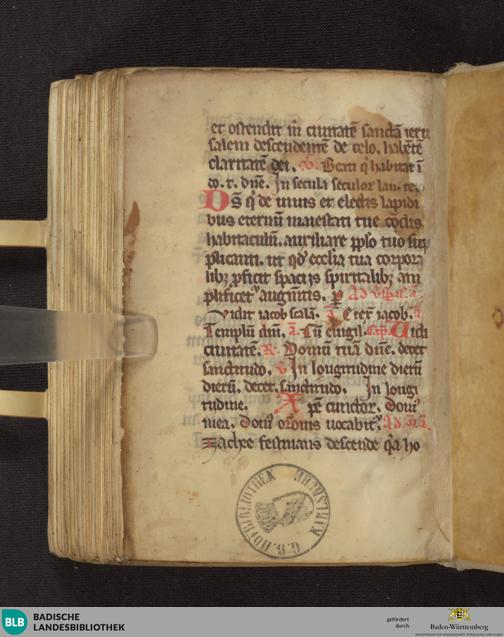 et ostendit m̄ ciuitatē sanctā ieru
salem descendentē de celo. habētē
claritatē dei. V. Beati q̄ habitāt ī
do. t. dn̄e. In secula seculor lau. te.
Ds̄ q̄ de uiuis et electis lapidi
bus eternū maiestati tue cōdis
habitaculū. auxiliare pplo tuo sup
plicanti. ut qd̄ ecclīa tua corpora
libȝ pficit spacijs spiritalibȝ am
plificet᷒ augmtis. p
Vidit iacob scalā. a. Erex iacob. a.
Templū dm̄. a. Cū euigil. Cap. Uidi
ciuitatē. R. Domū tuā dn̄e. decet
sanctitudo. V. In longitudine dierū
dierū. decet. sanctitudo. In longi
tudine. Xpē cunctor. Dom᷒
mea. Dom᷒ orōnis uocabit᷒.
Zachee festinans descende q̄a ho
G.B. HOFBIBLIOTHEK KARLSRUHE
BLB
BADISCHE
LANDESBIBLIOTHEK
gefördert
durch
Baden-Württemberg